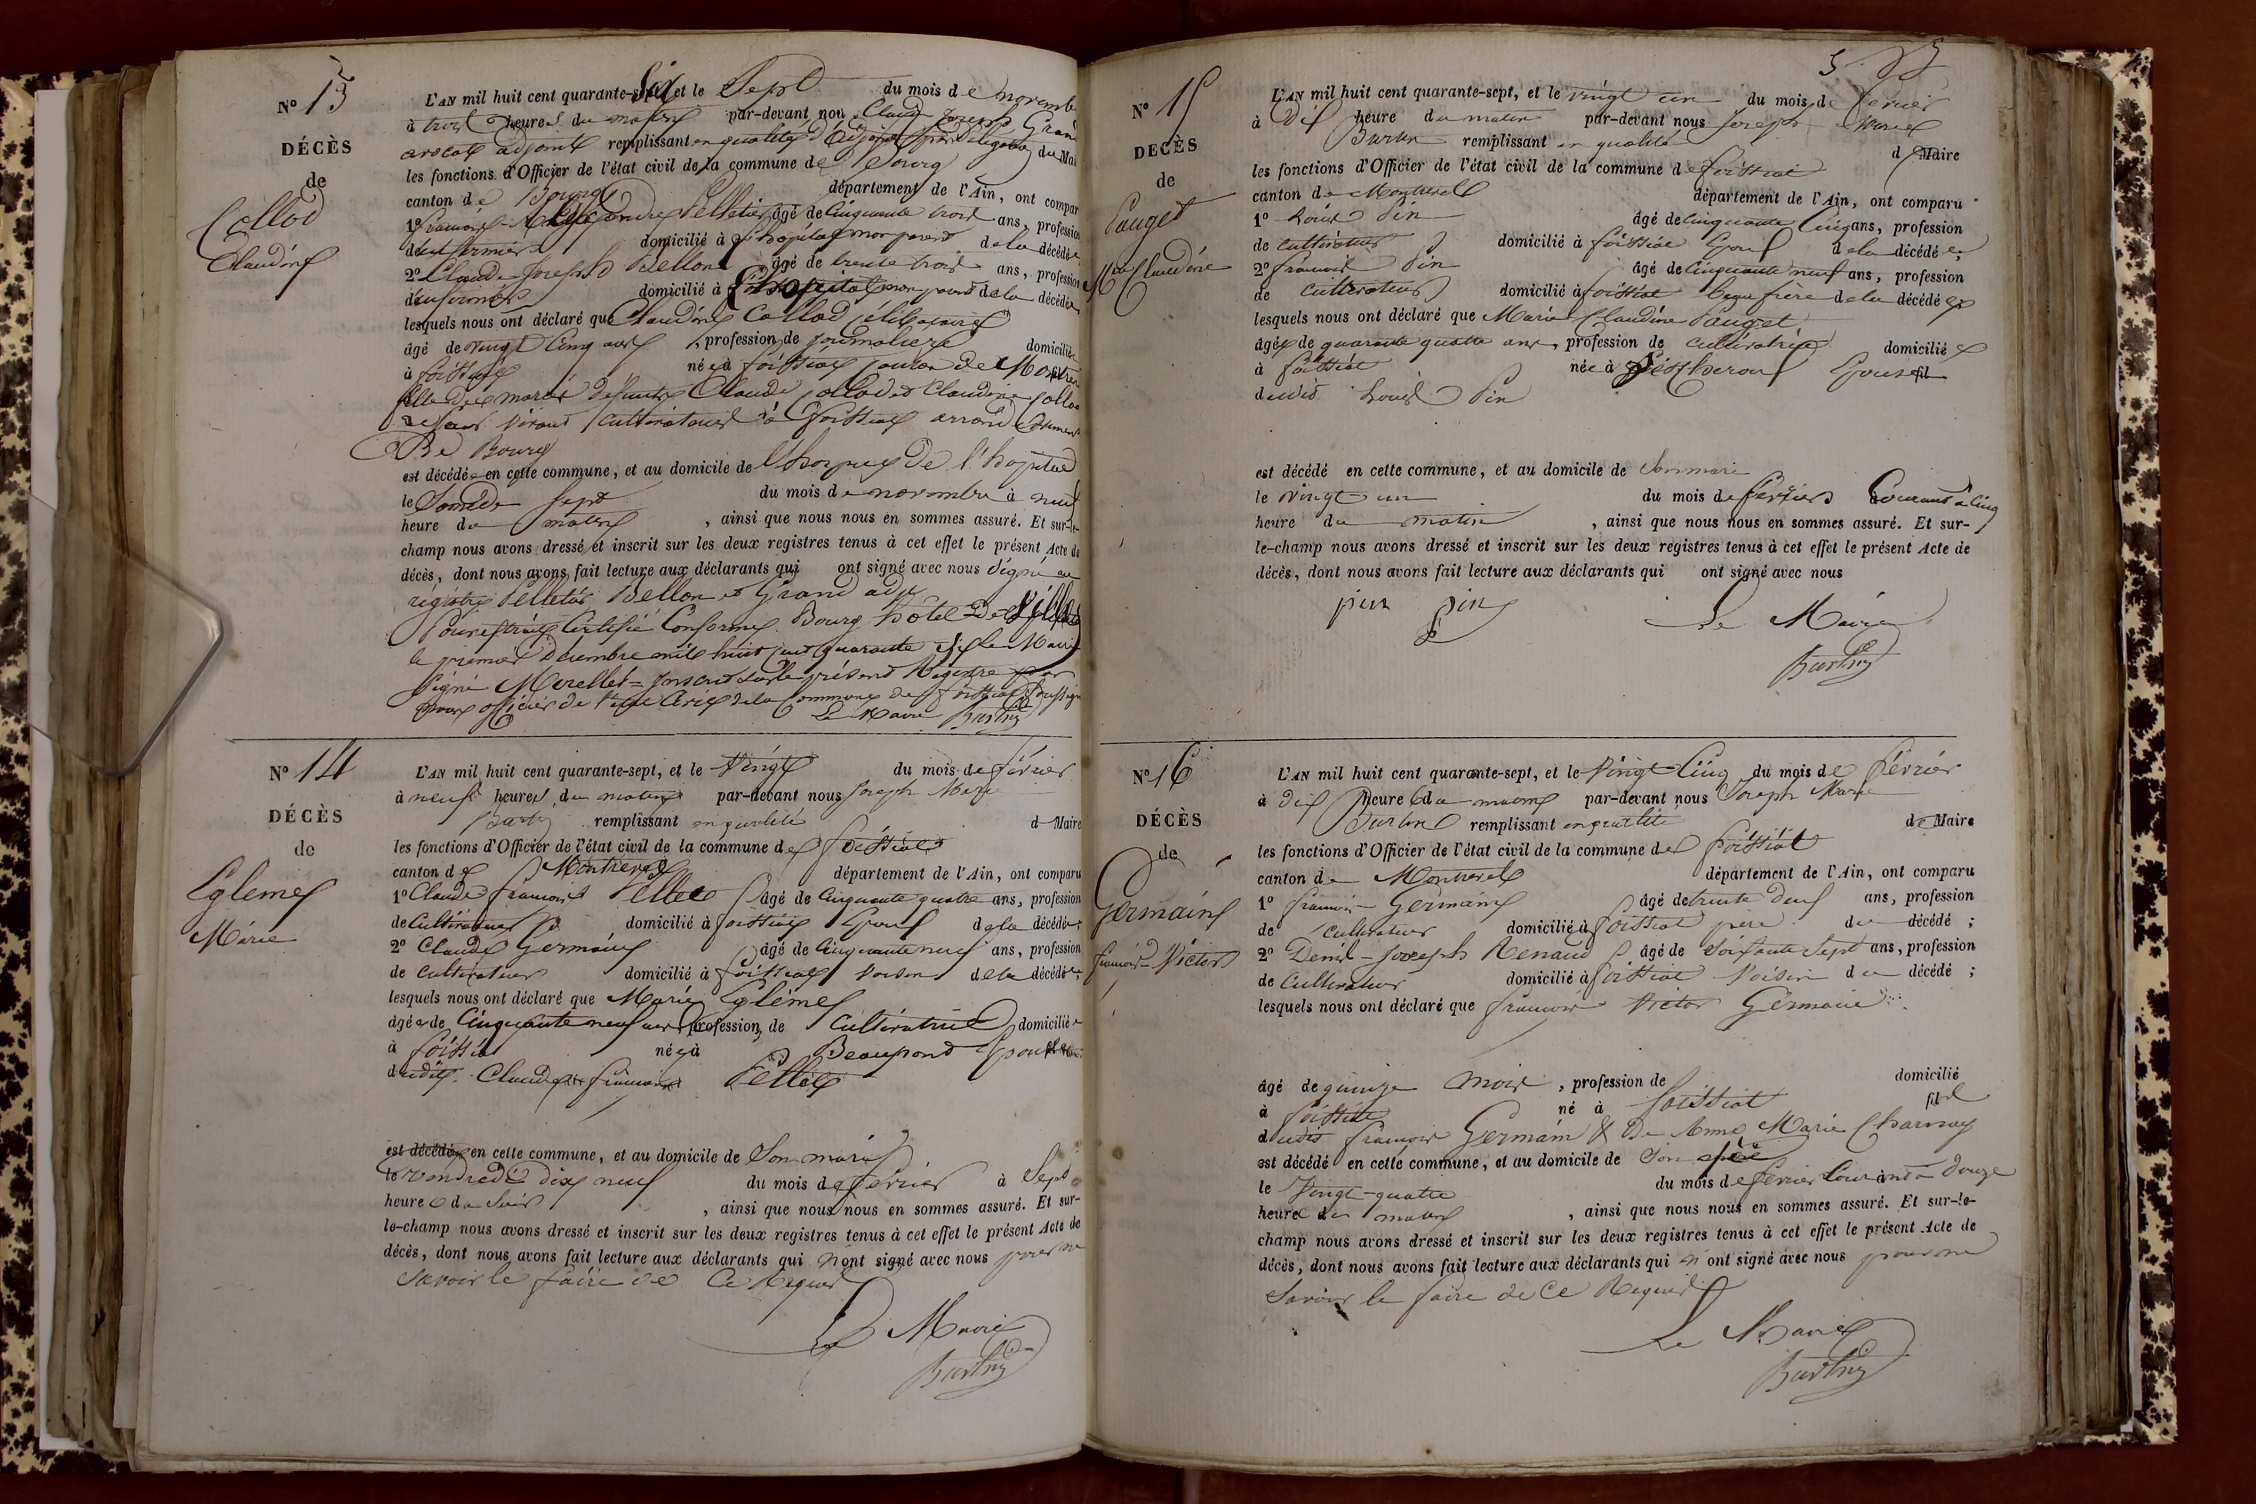 Nº 13
DÉCÈS
de
Collod
Claudine
L'AN mil huit cent quarante-sept Six et le Sept du mois de novembre
à trois heures du matin par-devant nous Claude Joseph Grand
avocat adjoint remplissant en qualité d'adjoint par délégation du Mai
les fonctions d'Officier de l'état civil de la commune de Bourg
canton de Bourg département de l'Ain, ont compar
1º françois Alexandre Pelletier âgé de Cinquante trois ans, profession
d'infirmier domicilié à l'hopital non parent de la décédée
2º Claude Joseph Bellon âgé de trente trois ans, profession
d'infirmier domicilié à l'hopital non parent de la décédée
lesquels nous ont déclaré que Claudine Collod célibataire
âgé de vingt Cinq ans profession de journalière domicilié
à foissiat née à foissiat canton de Montrevel
fille des mariés defunts Claude Collod et Claudine Collod
de leur vivant Cultivateurs à Foissiat arrondissement
De Bourg
est décédée en cette commune, et au domicile de l'hospice de l'hopital
le Samedi sept du mois de novembre à neuf
heure du matin, ainsi que nous nous en sommes assuré. Et sur-le-
champ nous avons dressé et inscrit sur les deux registres tenus à cet effet le présent Acte de
décès, dont nous avons fait lecture aux déclarants qui ont signé avec nous signé au
registre Pelletier Bellon et Grand adj.
Pour extrait Certifié Conforme Bourg hôtel De Ville
le premier décembre mil huit cent quarante Six le Maire
signé Morellet = Inscrit sur le présent Registre par
nous officier de l'état Civil de la Commune de foissiat soussigné
Le Maire
Nº 14
DÉCÈS
de
Egleme
Marie
L'AN mil huit cent quarante-sept, et le Vingt du mois de février
à neuf heures du matin par-devant nous Joseph Marie
remplissant en qualité de Maire
les fonctions d'Officier de l'état civil de la commune de foissiat
canton de Montrevel département de l'Ain, ont comparu
1º Claude françois Pellet âgé de Cinquante quatre ans, profession
de Cultivateur domicilié à foissiat Epoux de la décédée
2º Claude Germain âgé de Cinquante neuf ans, profession
de Cultivateur domicilié à foissiat voisin de la décédée;
lesquels nous ont déclaré que Marie Egleme
âgée de Cinquante neuf ans profession de Cultivatrice domicilié
à foissiat née à Beaupond Epouse
dudit Claude françois Pellet
est décédée en cette commune, et au domicile de Son mari
le vendredi dix neuf du mois de février à Sept
heure du Soir, ainsi que nous nous en sommes assuré. Et sur-
le-champ nous avons dressé et inscrit sur les deux registres tenus à cet effet le présent Acte de
décès, dont nous avons fait lecture aux déclarants qui n'ont signé avec nous pour ne
Savoir le faire de Ce Requis
Le Maire
Nº 15
DÉCÈS
de
Pauget
Mie Claudine
L'AN mil huit cent quarante-sept, et le vingt un du mois de février
à Dix heure du matin par-devant nous Joseph Marie
remplissant en qualité de Maire
les fonctions d'Officier de l'état civil de la commune de foissiat
canton de Montrevel département de l'Ain, ont comparu
1º Louis Pin âgé de Cinquante Cinq ans, profession
de cultivateur domicilié à foissiat Epoux de la décédée;
2º françois Pin âgé de Cinquante neuf ans, profession
de cultivateur domicilié à foissiat beau frère de la décédée
lesquels nous ont déclaré que Marie Claudine Pauget
âgée de quarante quatre ans, profession de cultivatrice domicilié
à foissiat née à Epouse fil
dudit Louis Pin
est décédé en cette commune, et au domicile de Son mari
le vingt un du mois de février Courant à Cinq
heure du matin, ainsi que nous nous en sommes assuré. Et sur-
le-champ nous avons dressé et inscrit sur les deux registres tenus à cet effet le présent Acte de
décès, dont nous avons fait lecture aux déclarants qui ont signé avec nous
pin pin
Le Maire
Nº 16
DÉCÈS
de
Germain
françois Victor
L'AN mil huit cent quarante-sept, et le Vingt Cinq du mois de février
à dix heure du matin par-devant nous Joseph Marie
remplissant en qualité de Maire
les fonctions d'Officier de l'état civil de la commune de foissiat
canton de Montrevel département de l'Ain, ont comparu
1º françois Germain âgé de trente deux ans, profession
de Cultivateur domicilié à foissiat père du décédé;
2º Denis-Joseph Renaud âgé de Soixante Sept ans, profession
de Cultivateur domicilié à foissiat voisin du décédé;
lesquels nous ont déclaré que françois Victor Germain
âgé de quinze mois, profession de domicilié
à foissiat né à foissiat fils
dudit françois Germain & De Anne Marie Charnay
est décédé en cette commune, et au domicile de Son père
le Vingt-quatre du mois de février Courant à Douze
heure du matin, ainsi que nous nous en sommes assuré. Et sur-le-
champ nous avons dressé et inscrit sur les deux registres tenus à cet effet le présent Acte de
décès, dont nous avons fait lecture aux déclarants qui n'ont signé avec nous pour ne
Savoir le faire de Ce Requis
Le Maire